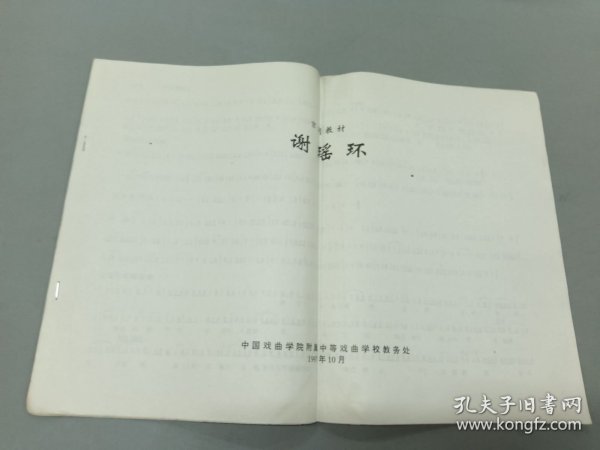 教材
谢瑶环
中国戏曲学院附属中等戏曲学校教务处
年10月
孔夫子旧书网
www.kongfz.com